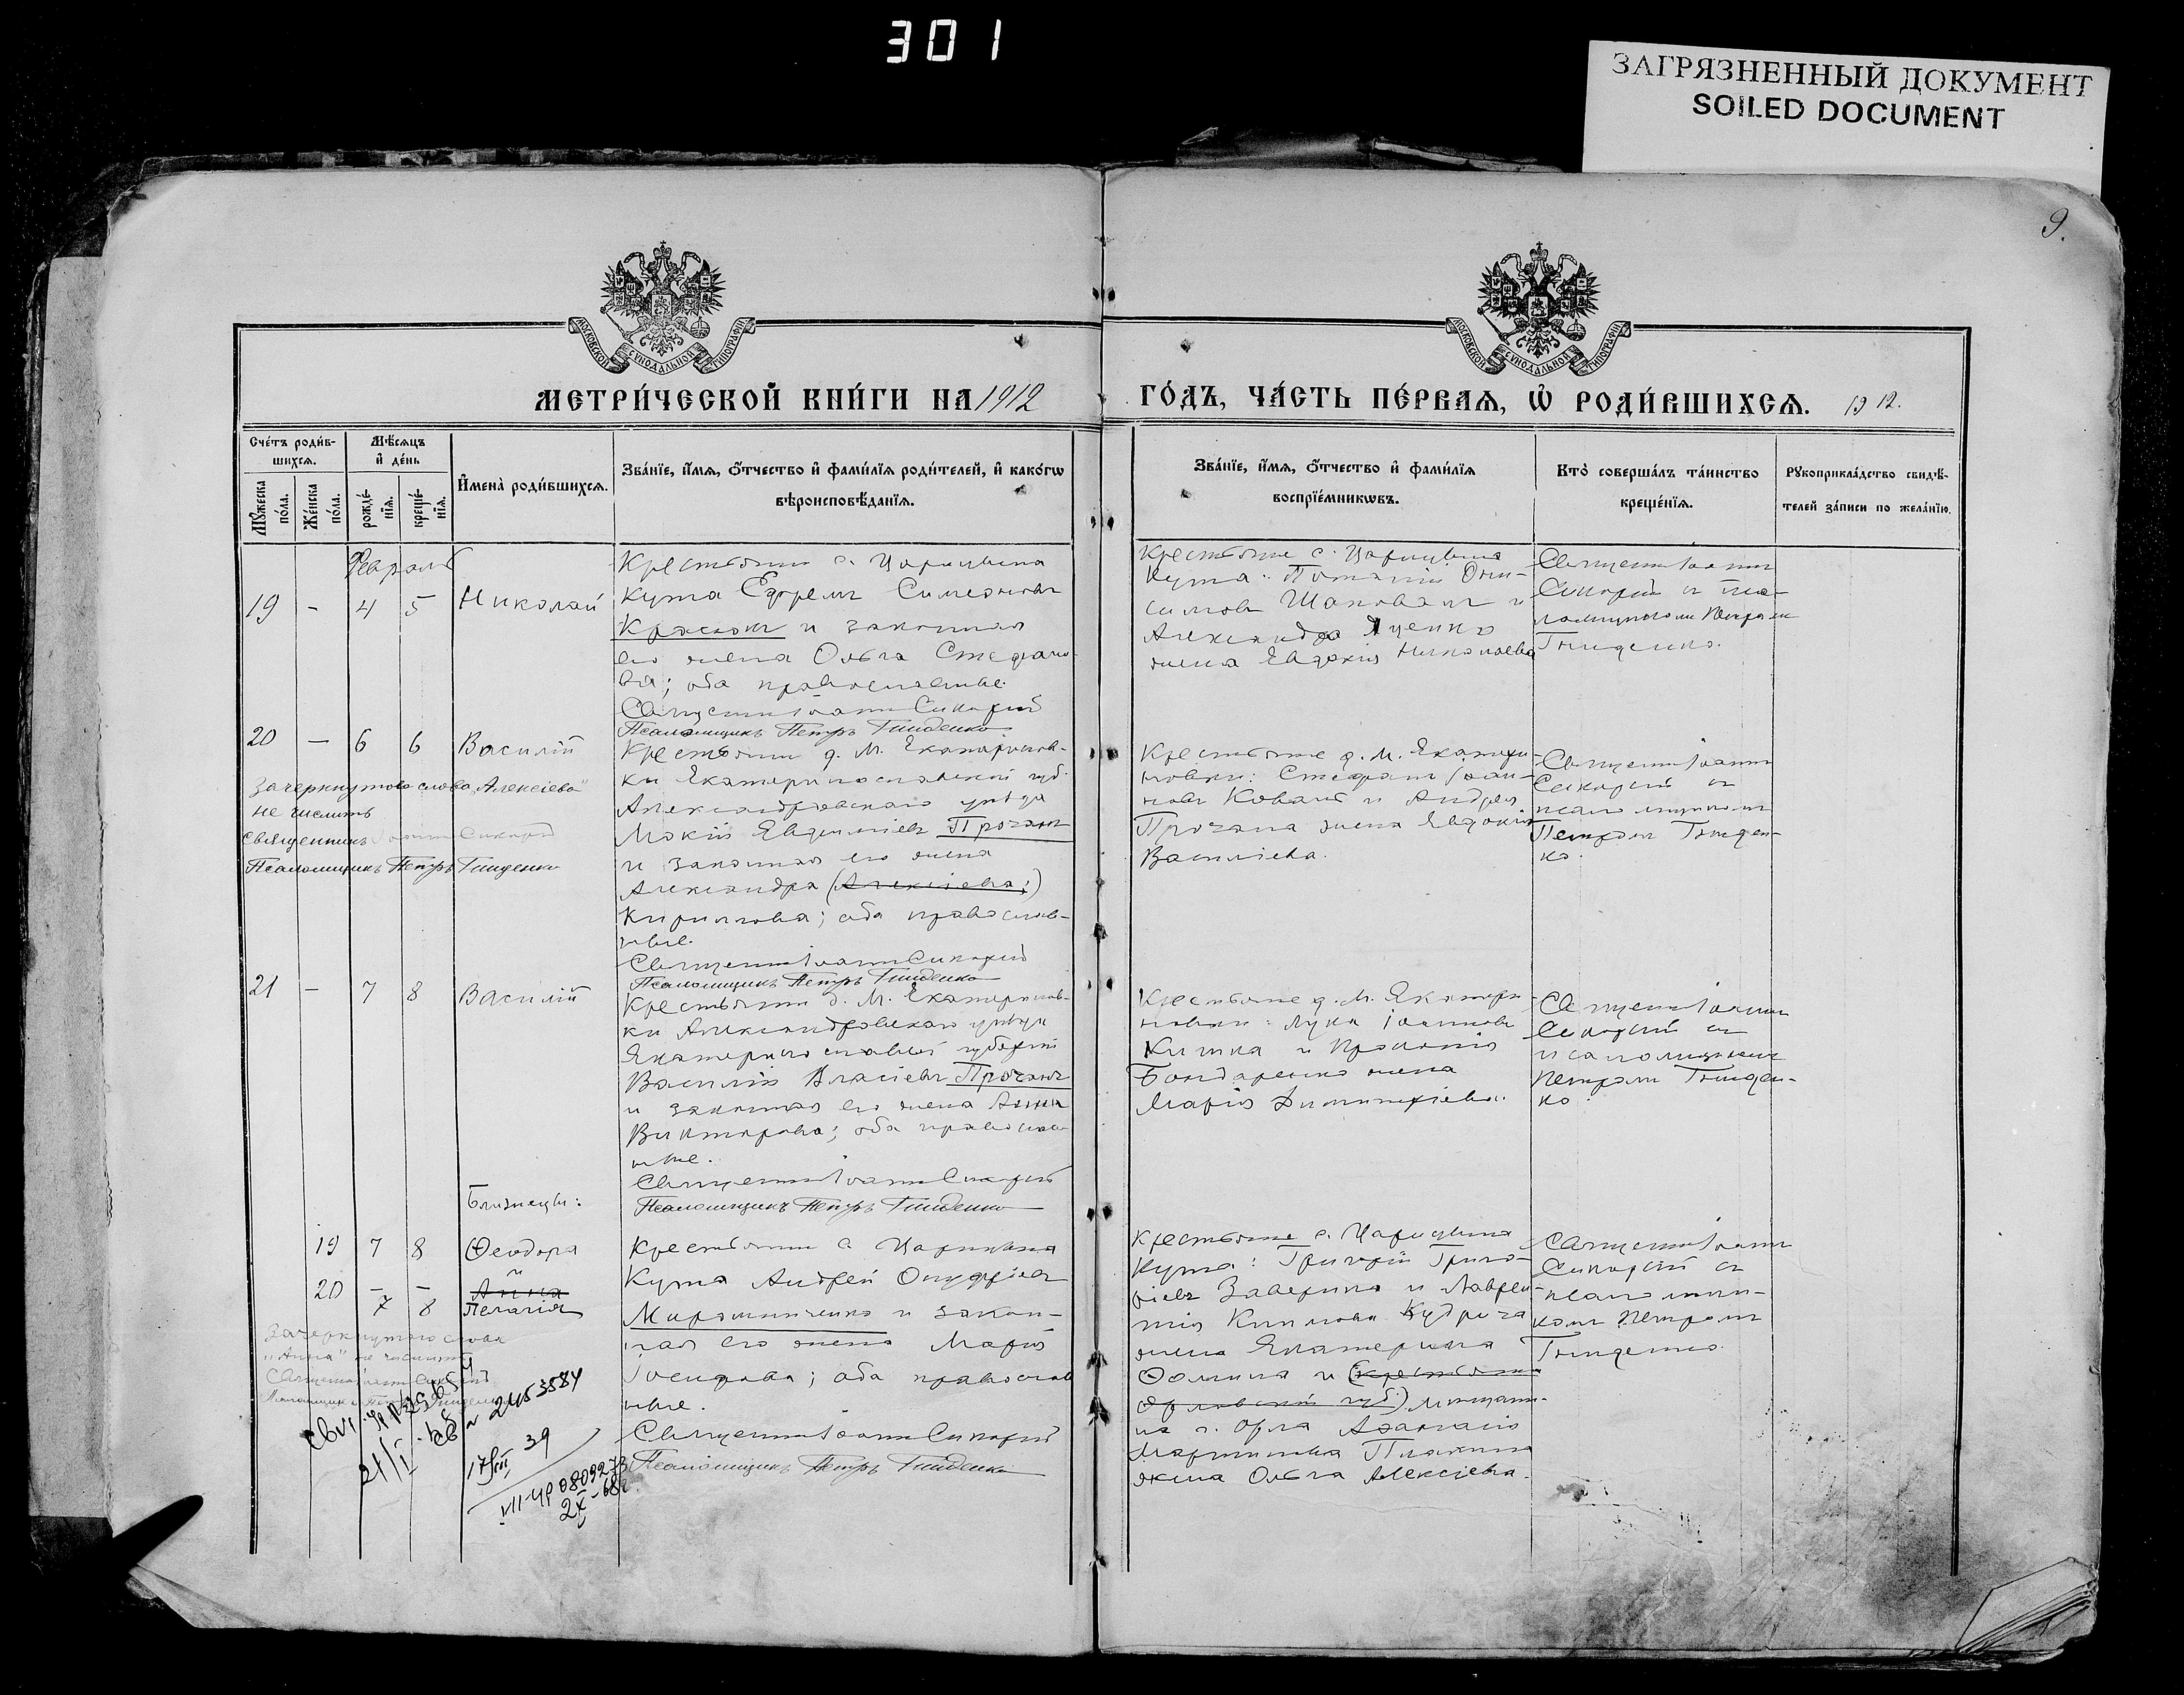 301
ЗАГРЯЗНЕННЫЙ ДОКУМЕНТ
SOILED DOCUMENT
9.
МОСКОВСКОЙ СѴНОДАЛЬНОЙ ТИПОГРАФІИ
МОСКОВСКОЙ СѴНОДАЛЬНОЙ ТИПОГРАФІИ
МЕТРИ́ЧЕСКОЙ КНИ́ГИ НА 1912
ГО́ДЪ, ЧА́СТЬ ПЕ́РВАѦ, Ѡ҆ РОДИ́ВШИХСѦ. 1912.
Сче́тъ роди́в-
шихсѧ.
Мѣ́сѧцъ
и҆ де́нь
Мꙋ́жеска
по́ла.
Же́нска
по́ла.
рожде́-
нїѧ.
креще́-
нїѧ.
И҆мена̀ роди́вшихсѧ.
Зва́нїе, и҆́мѧ, ѻ҆́тчество и҆ фами́лїѧ роди́телей, и҆ како́гѡ
вѣроисповѣ́данїѧ.
Зва́нїе, и҆́мѧ, ѻ҆́тчество и҆ фами́лїѧ
воспрїе́мникѡвъ.
Кто̀ соверша́лъ та́инство
креще́нїѧ.
Рꙋкоприкла́дство свидѣ́-
телей за́писи по жела́нїю.
Февраль
19 - 4 5 Николай
Крестьянин с. Царицына
Кута Ефремъ Симеоновъ
Красюкъ и законная
его жена Ольга Стефано-
ва; оба православные.
Священникъ Іоаннъ Сикорій
Псаломщикъ Петръ Гниденко
Крестьяне с. Царицына
Кута: Потапій Они-
симовъ Шаповалъ и
Александра Яценко
жена Евдокія Николаева
Священ. Іоаннъ
Сикорій съ пса-
ломщикомъ Петромъ
Гниденко.
20 — 6 6 Василій
Крестьянин д. М. Екатеринов-
ки Екатеринославской губ.
Александровскаго уѣзда
Мокій Евдокимовъ Прочанъ
и законная его жена
Александра (Алексіева;)
Кириллова; оба православ-
ные.
Священникъ Іоаннъ Сикорій
Псаломщикъ Петръ Гниденко
Зачеркнутого слово „Алексіева"
не числить
Священникъ Іоаннъ Сикорій
Псаломщикъ Петръ Гниденко
Крестьяне д. М. Екатери-
новки: Стефанъ Іоан-
новъ Коваль и Андрея
Прочана жена Евдокія
Василіева.
Священ. Іоаннъ
Сикорій съ
псаломщикомъ
Петромъ Гниден-
ко.
21 - 7 8 Василій
Крестьянин д. М. Екатеринов-
ки Александровскаго уѣзда
Екатеринославской губерніи
Василій Власіевъ Прочанъ
и законная его жена Анна
Викторова; оба православ-
ные.
Священникъ Іоаннъ Сикорій
Псаломщикъ Петръ Гниденко
Крестьяне д. М. Екатери-
новки: Лука Іоанновъ
Кишка и Прокопія
Бондаренко жена
Марія Димитріева.
Священ. Іоаннъ
Сикорій съ
псаломщикомъ
Петромъ Гниден-
ко.
Близнецы:
19 7 8 Ѳеодора
и
20 - - Анна
7 8 Пелагія
Крестьянин с. Царицына
Кута Андрей Онуфріевъ
Мирошниченко и закон-
ная его жена Марія
Іосифова; оба православ
ные.
Священникъ Іоаннъ Сикорій
Псаломщикъ Петръ Гниденко
Крестьяне с. Царицына
Кута: Григорій Григо-
ріевъ Заверуха и Лаврен-
тія Климова Кудряча
жена Екатерина
Ѳомина и (крестьяни
Орловской губ.) мѣщани-
на г. Орла Аѳанасія
Мартинова Плахина
жена Ольга Алексіева.
Священ. Іоаннъ
Сикорій съ
псаломщи-
комъ Петромъ
Гниденко.
Зачеркнутого слова
„Анна" не числить
Священ. Іоаннъ Сикорій
Псаломщикъ Петръ Гниденко
2453584
17/III 39
VII-ЧР 0809273
2X-68г.